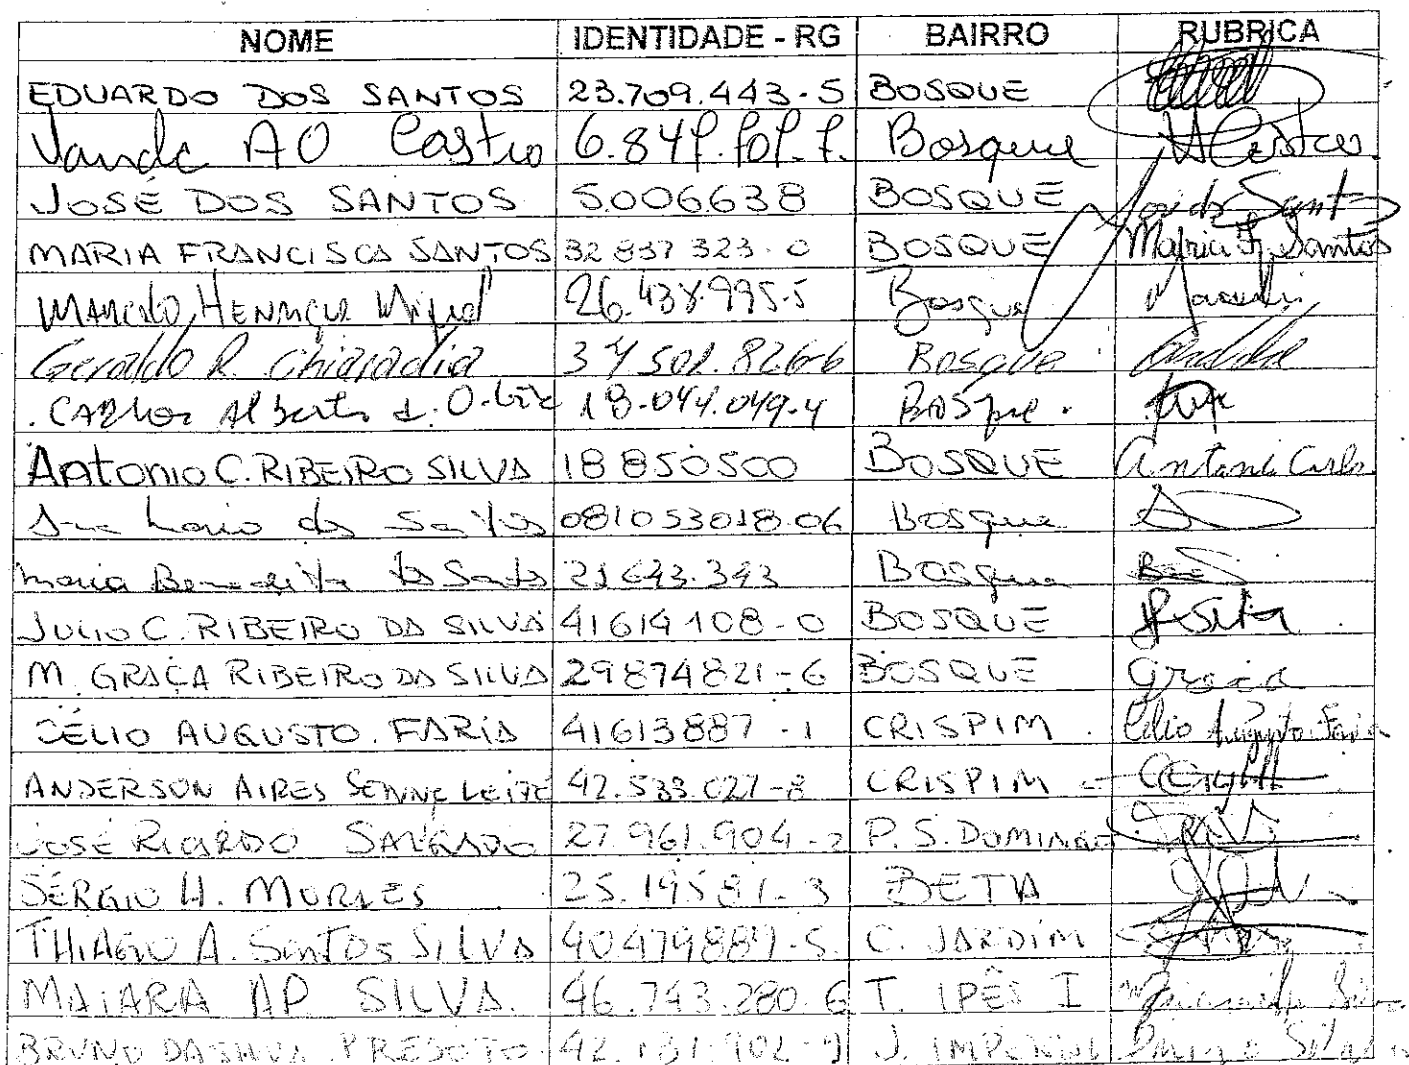 NOME IDENTIDADE - RG BAIRRO RUBRICA
EDUARDO DOS SANTOS 23.709.443-5 BOSQUE
Vanda AO Castro Bosque Castro
JOSÉ DOS SANTOS 5006638 BOSQUE José ds Santos
MARIA FRANCISCA SANTOS 32 837 323-0 BOSQUE Maria F. Santos
MARCELO HENRIQUE Miguel 26.438.995-5 Bosque
Geraldo R. Chiaradia 37 501.826-6 Bosque
CARLOS Alberto d. O. 18.044.049-4 BOSque
Antonio C. RIBEIRO SILVA 18850500 BOSQUE Antonio Carlos
dos Santos 081053018-06 Bosque
Maria Benedita dos Santos 21643.343 Bosque
JULIO C. RIBEIRO DA SILVA 41614108-0 BOSQUE
M. GRAÇA RIBEIRO DA SILVA 29874821-6 BOSQUE Graça
CÉLIO AUGUSTO FARIA 41613887-1 CRISPIM Célio Augusto Faria
ANDERSON AIRES LEITE 42.533.027-8 CRISPIM
JOSÉ RICARDO SALGADO 27.961.904-2 P. S. DOMINGOS
SÉRGIO H. MORAES BETA
THIAGO A. SANTOS SILVA 40479889-5 C. JARDIM
MAIARA AP SILVA 46.743.280-6 T. IPÊS I
BRUNO DA SILVA PRESOTO J. IMPERIAL